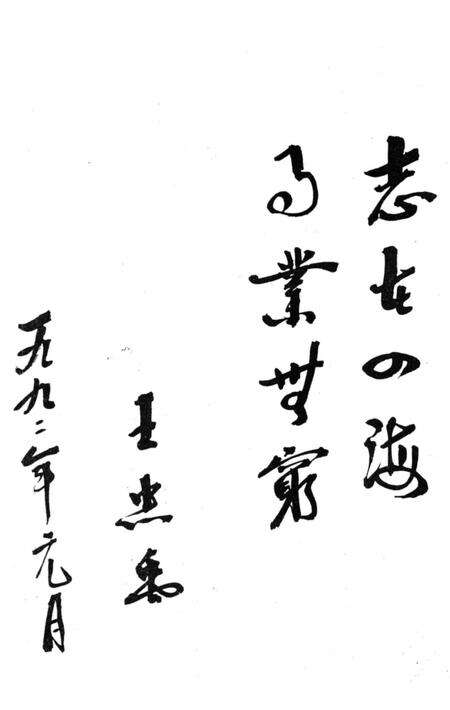 志在四海
事業無窮
王忠禹
一九九二年元月